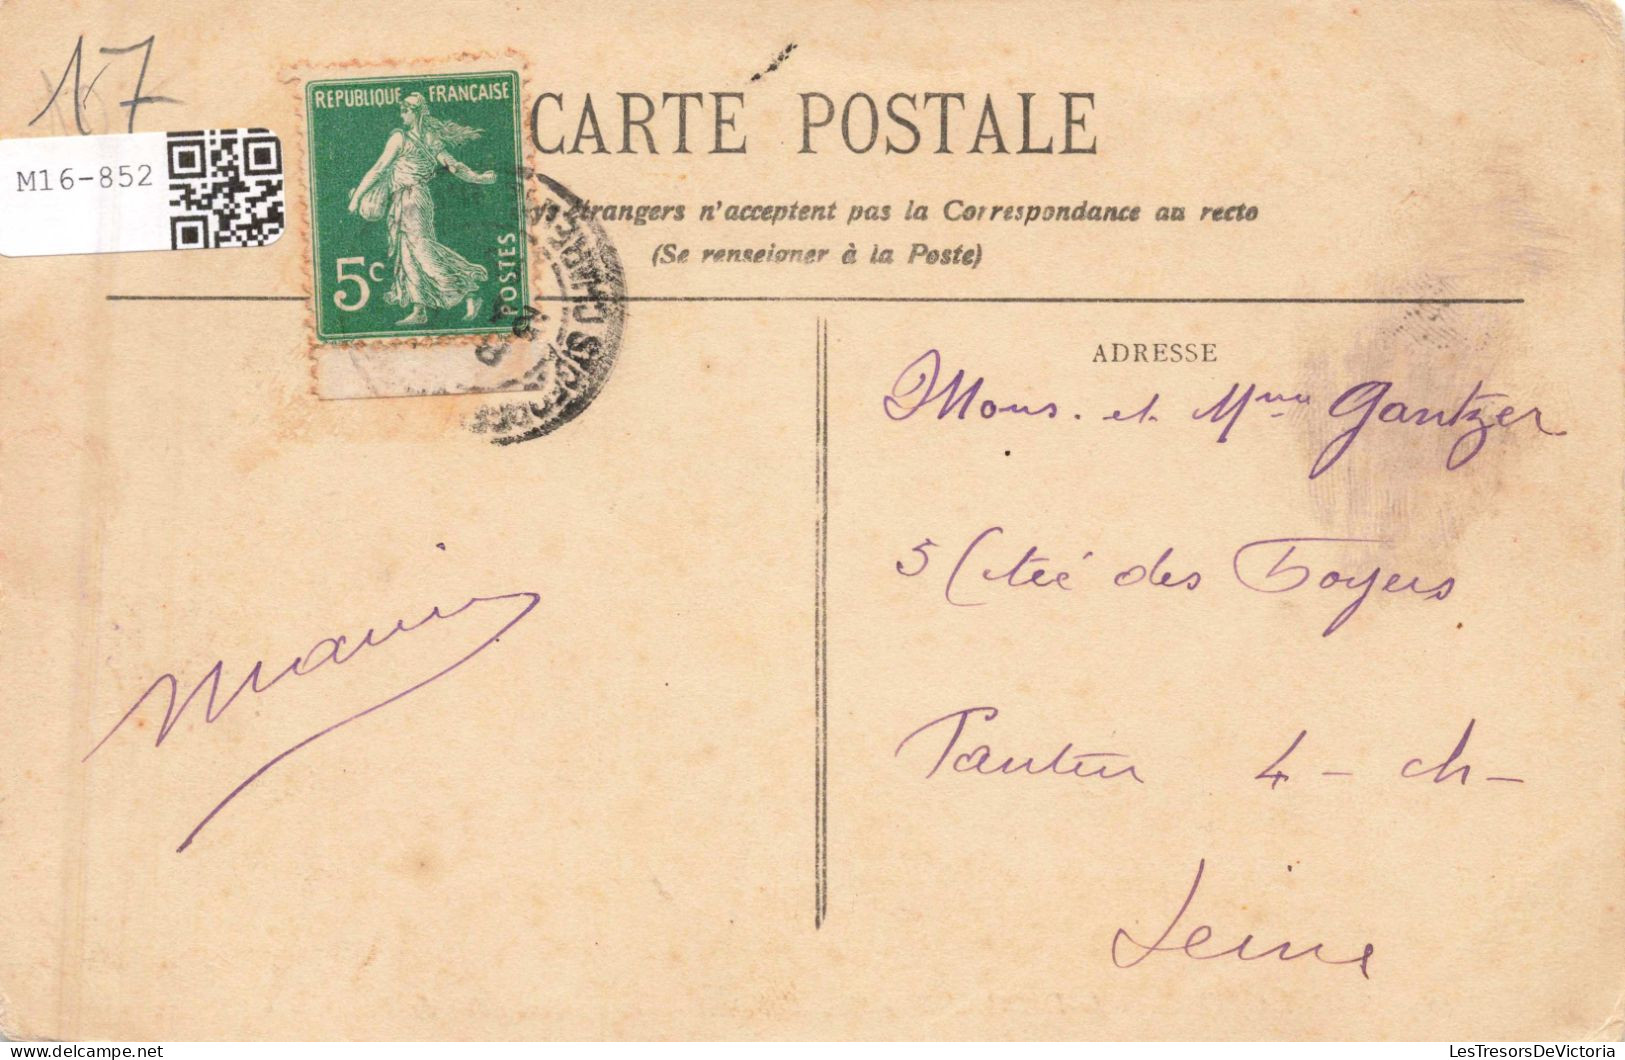 17
M16-852
REPUBLIQUE FRANÇAISE
5c
POSTES
CARTE POSTALE
étrangers n'acceptent pas la Correspondance au recto
(Se renseigner à la Poste)
ADRESSE
Mons. et Mme Gantzer
5 Citée des Foyers
Pantin 4 - ch -
Seine
LesTresorsDeVictoria
delcampe.net